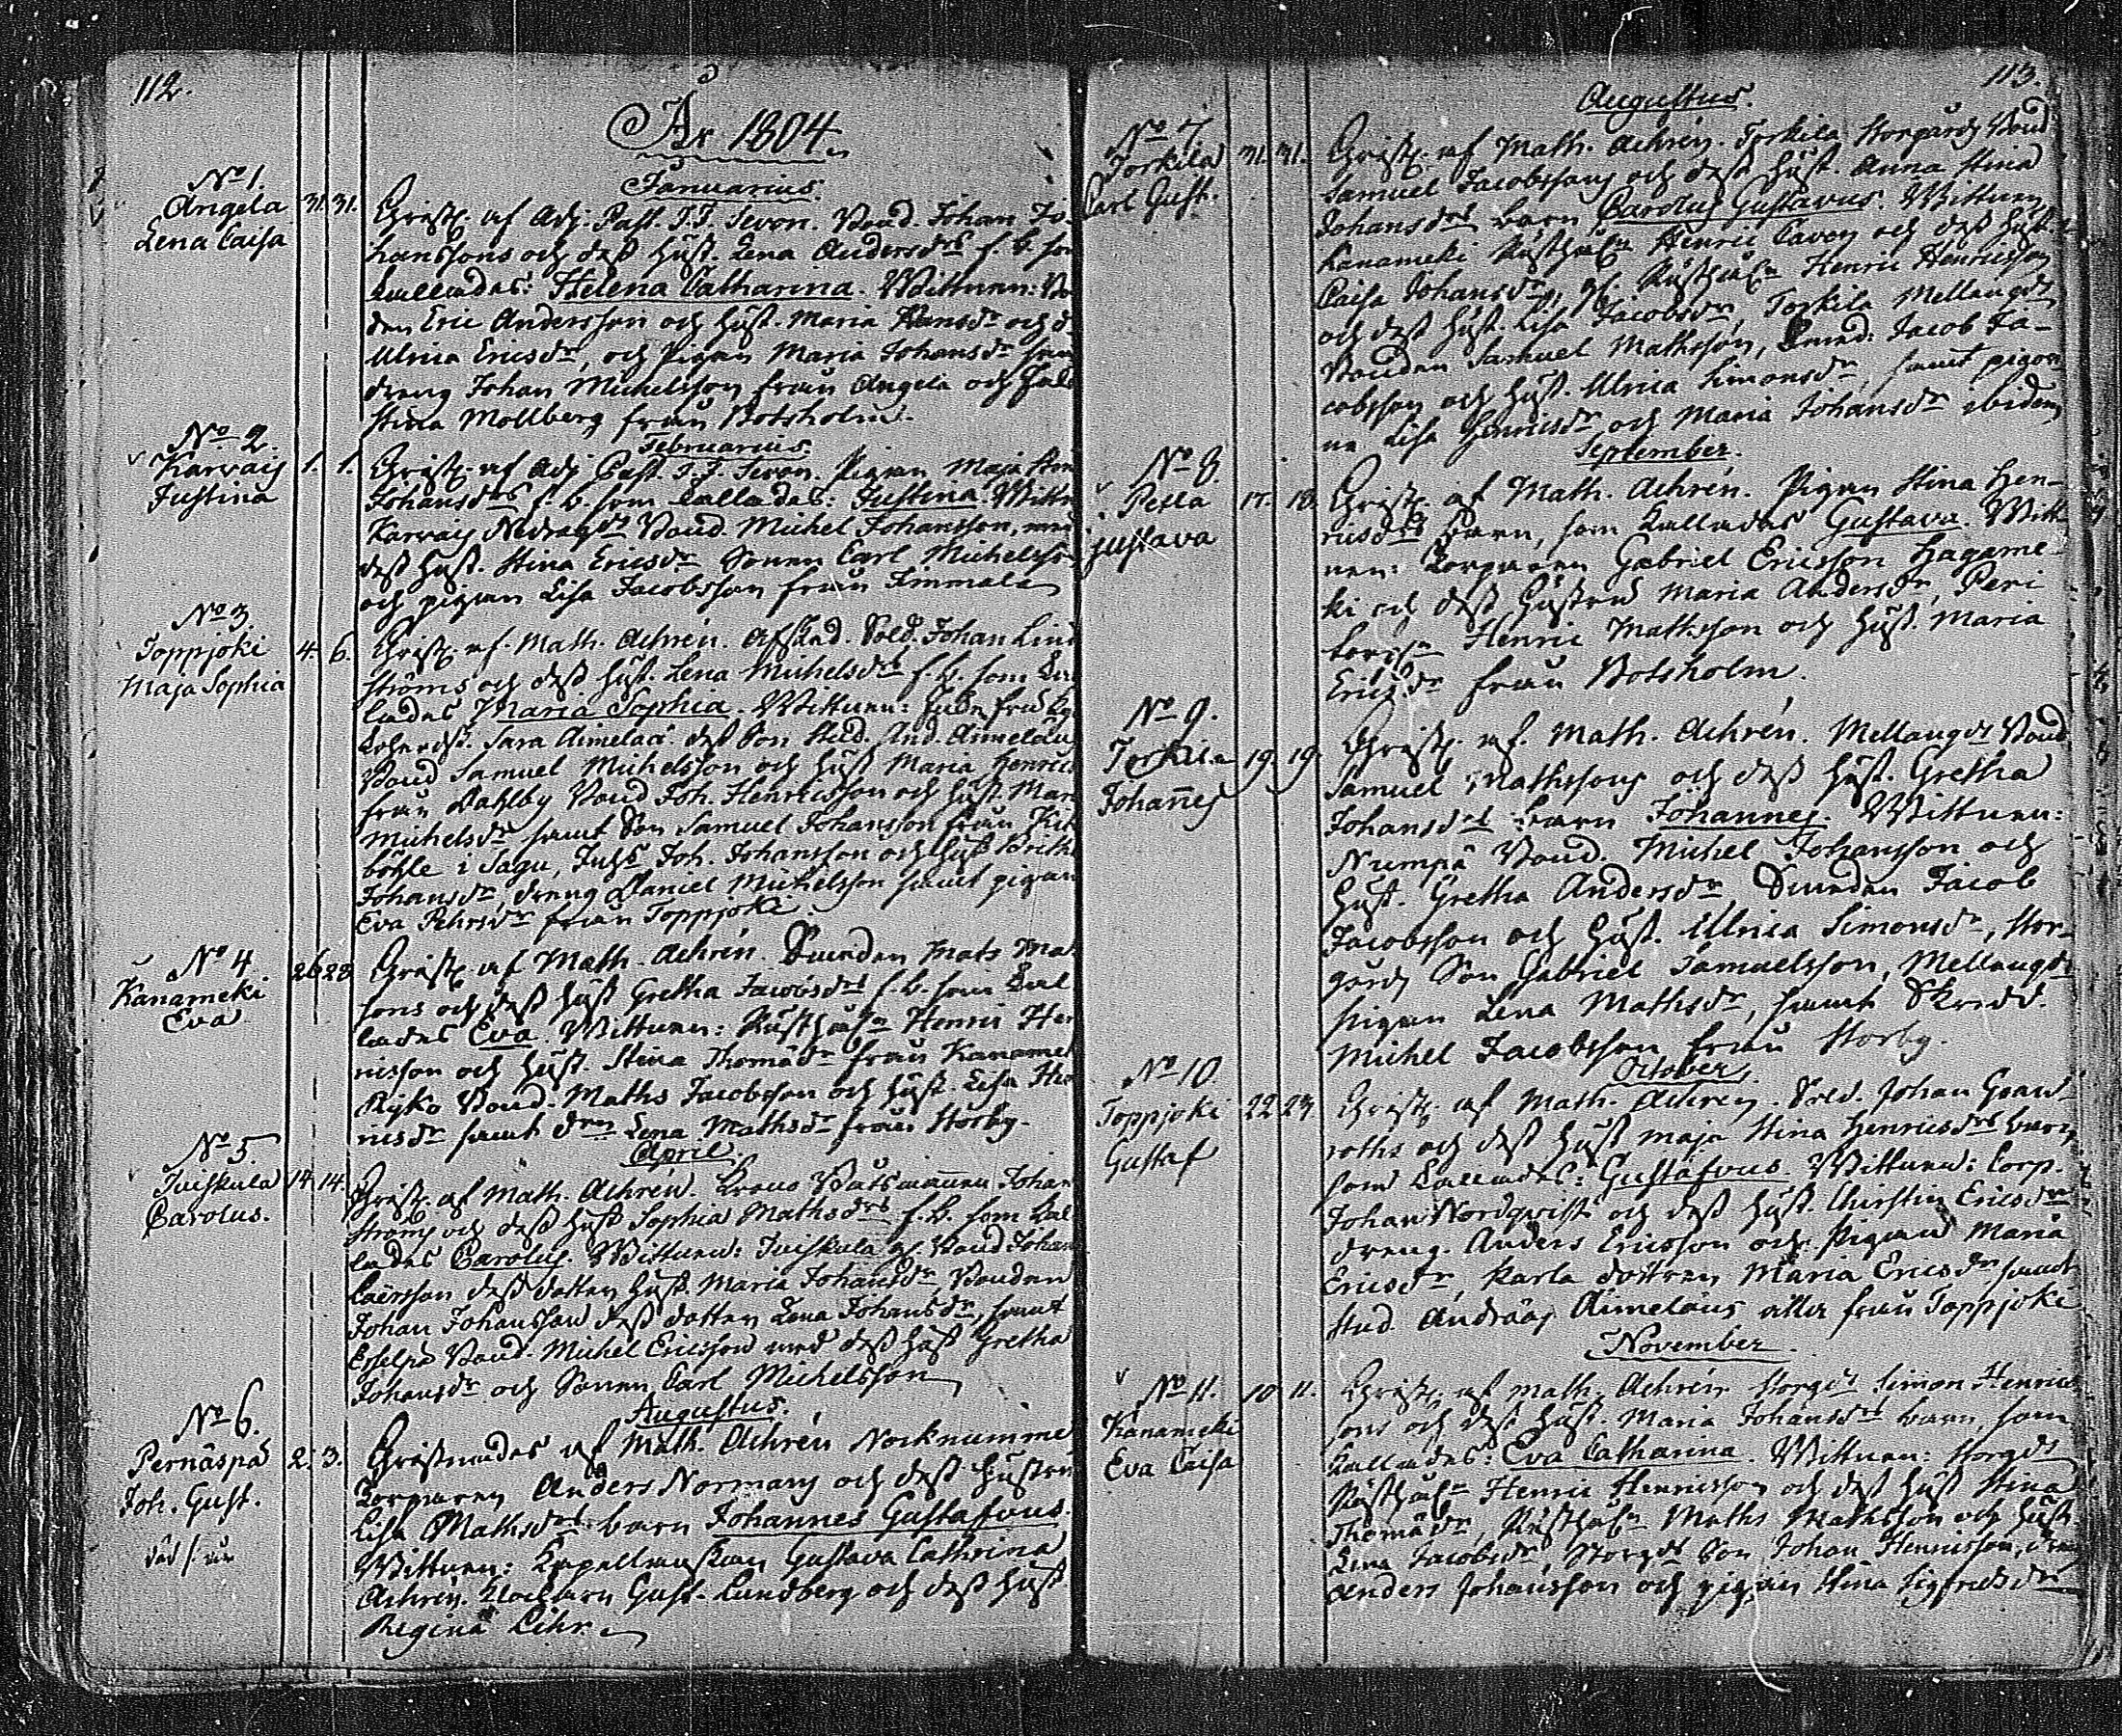 112.
År 1804.
Januarius.
No 1.
Angela 31. 31.
Lena Caisa
Christ. af Adj. Past. J. J. Sevon. Bond. Johan Jo-
hanssons och dess Hust. Lena Andersdrs f. b. som
kallades: Helena Catharina. Wittnen: Bon
den Eric Andersson och Hust. Maria Hansdr och
Ulrica Ericsdr, och Pigan Maria Johansdr
dreng Johan Michelsson från Angela och
Stina Mollberg från Botsholm.
Februarius.
No 2.
Karvais 1. 1.
Justina
Christ. af Adj. Past. J. J. Sevon. Pigan Maja Stina
Johansdrs f. b. som kallades: Justina. Wittn
Karvais Nedragds Bond. Michel Johansson, med
dess Hust. Stina Ericsdr Sonen Carl Michelsson
och pigan Lisa Jacobsson från Kimmala
No 3.
Toppjoki 4. 6.
Maja Sophia
Christ. af. Math. Achrén. Afsked. Sold. Johan Lind
ströms och dess Hust. Lena Michelsdrs f. b. som kal
lades Maria Sophia. Wittnen:
Sara Aimelaa. dess Son Stud. And. Aimeläus
Bond Samuel Michelsson och Hust Maria Henrics
från Dahlby Bond Joh. Henricsson och Hust. Mar
Michelsdr samt Son Samuel Johansson från
böhle i Sagu, Joh. Johansson och Hust Brita
Johansdr, dreng Daniel Michelsson samt pigan
Eva Pehrsdr från Toppjoki.
No 4
Kanameki 26 28
Eva
Christ. af Math. Achrén. Bonden Mats Mat
sons och dess Hust Gretha Jacobsdrs f. b. som kal
lades Eva. Wittnen: Rusthåln Henric Hen
ricsson och Hust. Stina Thomädr från Kanamek
Ryko Bond. Maths Jacobsson och Hust. Lisa
ricsdr samt Lena Mathsdr från Storby.
April.
No 5.
Tuiskula 14. 14.
Carolus.
Christ. af Math. Achren. Crono Båtsmannen Johan
Ströms och dess Hust Sophia Mathsdrs f. b. som kal
lades Carolus. Wittnen: Tuiskula gl. Bond Johan
Carsson dess dotter Hust. Maria Johansdr, Bonden
Johan Johansson dess dotter Lena Johansdr, samt
Esselpä Bond. Michel Ericsson med dess Hust Gretha
Johansdr och Sonen Carl Michelsson
Augustus.
No 6.
Pernäspä 2. 3.
Joh. Gust.
Christnades af Math. Achrén Nocknumme
Torparen Anders Normans och dess Hustru
Lisa Mathsdrs barn Johannes Gustafvus.
Wittnen: Kapellanskan Gustava Cathrina
Achrén. Klockaren Gust. Lundberg och dess Hust.
Regina Lihr.
113.
Augustus.
No 7
Torkila 31. 31.
Carl Gust.
Christ. af Math. Achrén. Torkila Storgårds Bond
Samuel Jacobssons och dess Hust. Anna Stina
Johansdrs barn Carolus Gustavus. Wittnen
Kanameki Rusthåln Henric Cavon och dess Hust.
Caisa Johansdr, gl. Rusthåln Henric Henricsson
och dess Hust. Lisa Jacobsdr, Torkila Mellangds
Bonden Samuel Mathsson, Jacob Ja-
cobsson och Hust. Ulrica Simonsdr, samt pigor-
na Lisa Henricsdr och Maria Johansdr ibidem
September.
No 8.
Petla 17. 18.
justava
Christ. af Math. Achrén. Pigan Stina Hen-
ricsdrs barn, som kallades Gustava. Witt-
nen: Torparen Gabriel Ericsson Hagame-
ki och dess Hustru Maria Andersdr, Peri
Henric Mathsson och Hust. Maria
Ericsdr från Botsholm.
No 9.
Torkila 19. 19.
Johannes
Christ. af. Math. Achrén. Mellangds Bond
Samuel Mathssons och dess Hust. Gretha
Johansdrs barn Johannes. Wittnen:
Numpä Bond. Michel Johansson och
Hust. Gretha Andersdr, Jacob
Jacobsson och Hust. Ulrica Simonsdr, Stor-
gårds Son Gabriel Samuelsson, Mellangds
Pigan Lena Mathsdr, samt Skredd.
Michel Jacobsson från Storby.
October.
No 10.
Toppjoki 22 23
Gustaf
Christ. af Math. Achrén. Sold. Johan Gran-
roths och dess Hust Maja Stina Henricsdrs barn,
som kallades: Gustafvus. Wittnen: Corp.
Johan Nordqvist och dess Hust. Christin Ericsdr
dreng. Anders Ericsson och Pigan Maria
Ericsdr, Karla dottren Maria Ericsdr samt
Stud. Andräas Aimeläus alla från Toppjoki
November.
No 11. 10 11.
Kanameki
Eva Caisa
Christ. af Math. Achrén Storgds Simon Henrics
sons och dess Hust. Maria Johansdrs barn, som
kallades: Eva Catharina. Wittnen: Storgds
Rusthåln Henric Henricsson och dess Hust Stina
Thomädr, Rusthåln Maths Mathsson och Hust.
Lena Jacobsdr, Storgds Son Johan Henricsson, dren
Anders Johansson och pigan Stina Sigfridsdr